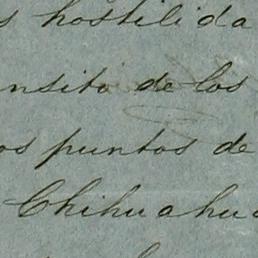 s hostilida
nsito de los
os puntos de
Chihuahua